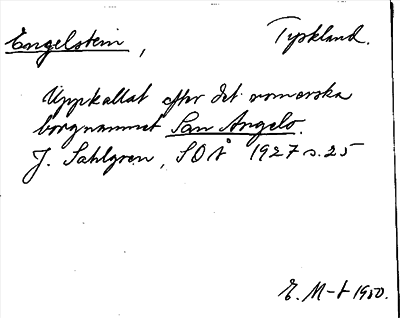 Engelstein, Tyskland.
Uppkallat efter det romerska
borgnamnet San Angelo.
J. Sahlgren, SOÅ 1927 s. 25
E. M-t 1950.